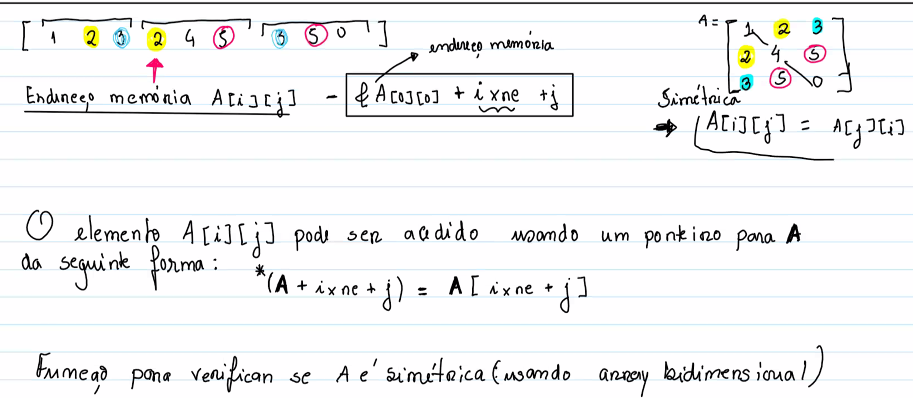 [ 1 2 3 2 4 5 3 5 0 ]
endereço memória
A = [ 1 2 3
2 4 5
3 5 0 ]
Endereço memória A[i][j] - & A[0][0] + i x ne + j
Simétrica
→ A[i][j] = A[j][i]
O elemento A[i][j] pode ser acedido usando um ponteiro para A
da seguinte forma:
*(A + i x ne + j) = A[ i x ne + j ]
Função para verificar se A é simétrica (usando array bidimensional)